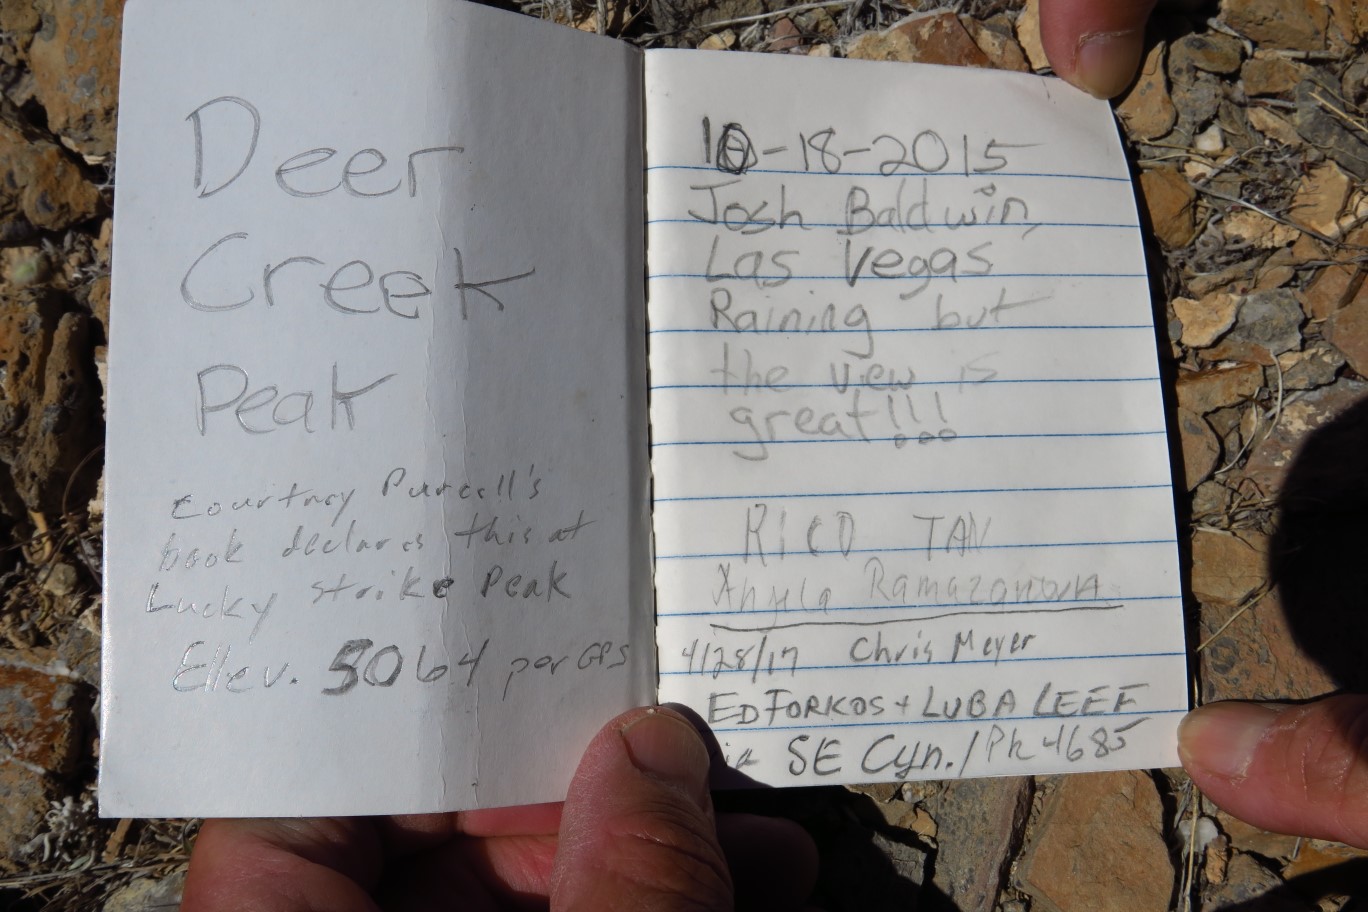 Deer
Creek
Peak
Courtney Purcell's
book declares this at
Lucky Strike Peak
Ellev. 5064 per GPS
10-18-2015
Josh Baldwin,
Las Vegas
Raining but
the view is
great!!!
RICO TAN
Ramazanova
4/28/17 Chris Meyer
ED FORKOS + LUBA LEEF
SE Cyn./Pk 4685